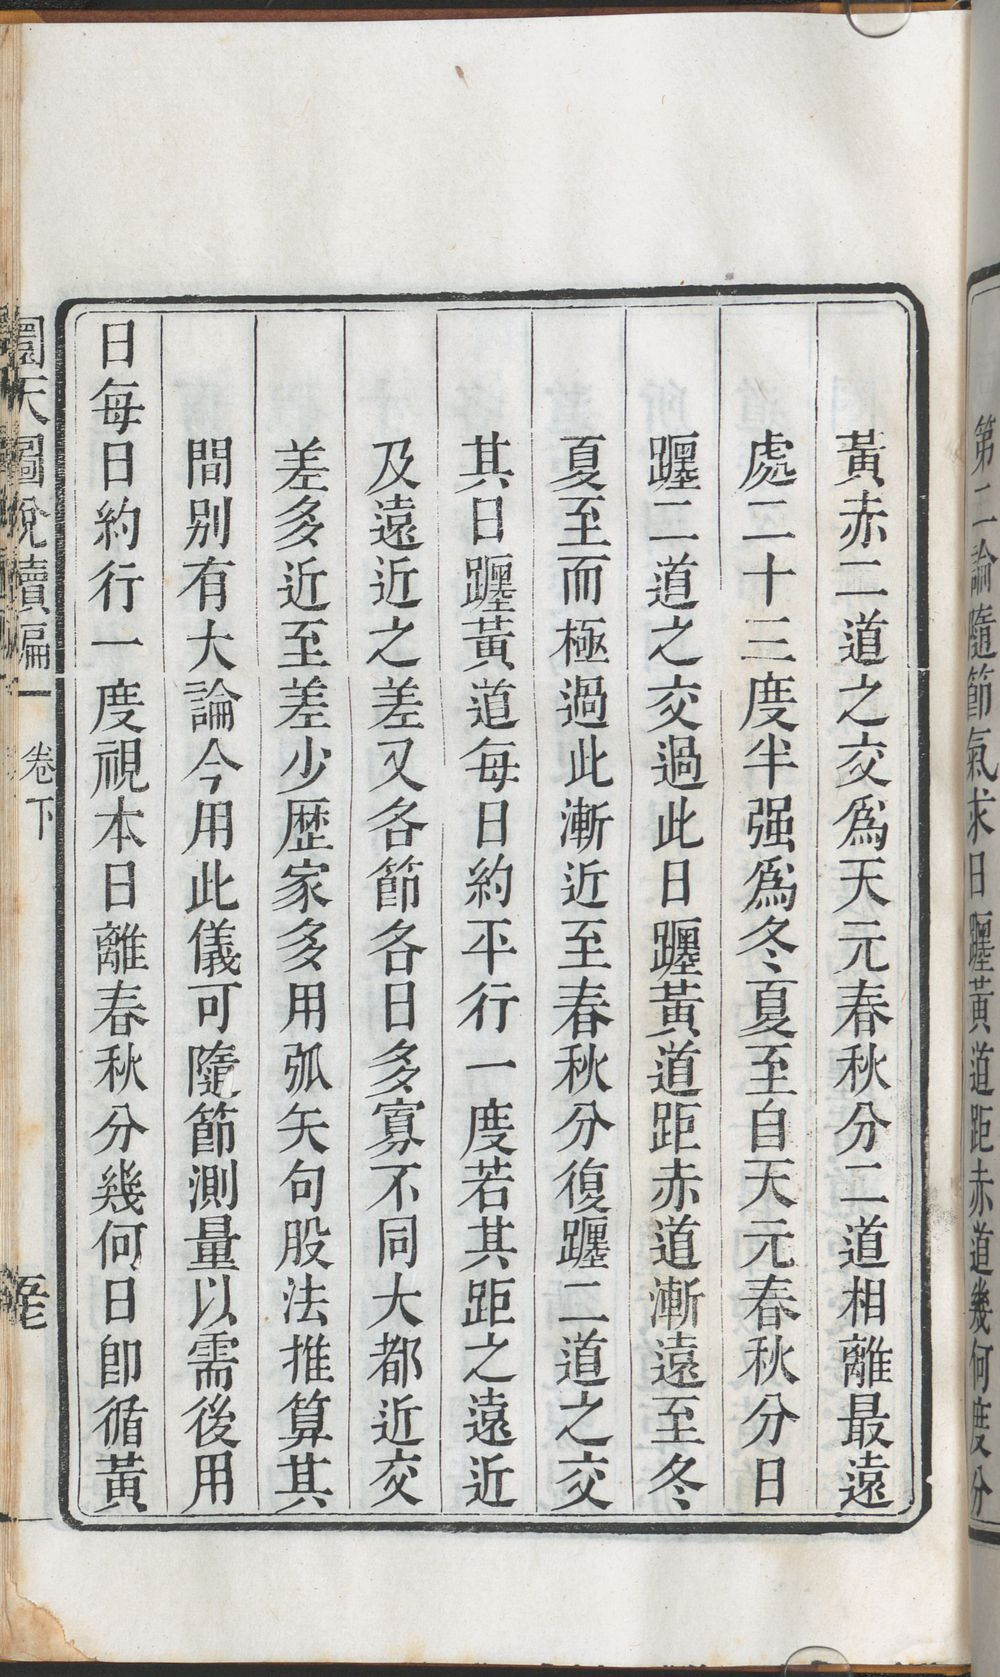 第二論隨節氣求日躔黃道距赤道幾何度分
黃赤二道之交爲天元春秋分二道相離最遠
處二十三度半强爲冬夏至自天元春秋分日
躔二道之交過此日躔黃道距赤道漸遠至冬
夏至而極過此漸近至春秋分復躔二道之交
其日躔黃道每日約平行一度若其距之遠近
及遠近之差又各節各日多寡不同大都近交
差多近至差少歷家多用弧矢句股法推算其
間别有大論今用此儀可隨節測量以需後用
日每日約行一度視本日離春秋分幾何日卽循黃
圜天圖說續編 卷下